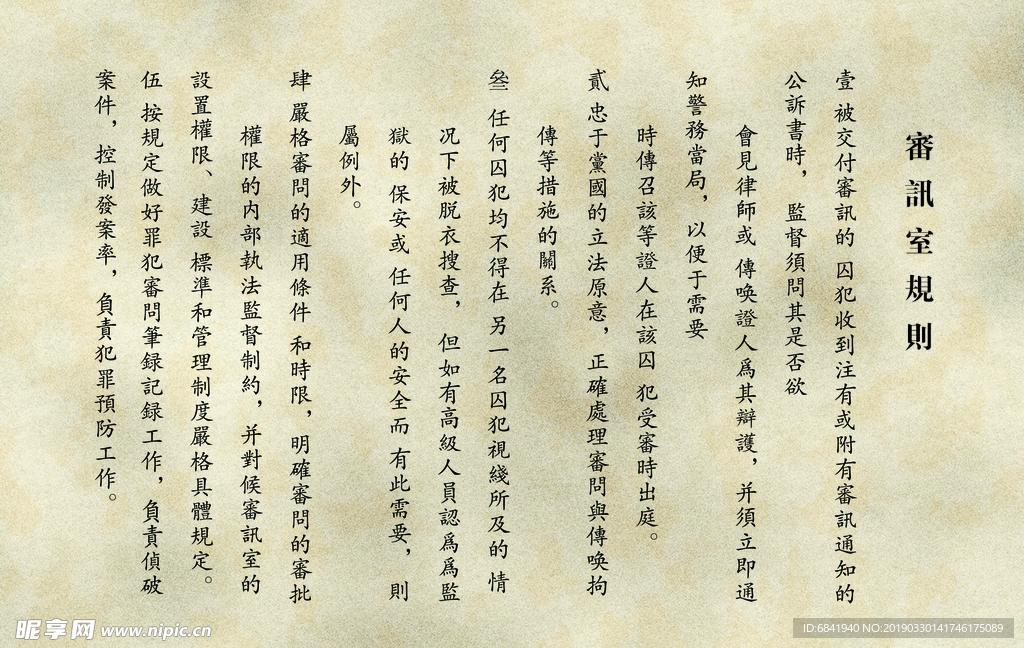 審訊室規則
壹 被交付審訊的 囚犯收到注有或附有審訊通知的
公訴書時， 監督須問其是否欲
會見律師或 傳唤證人爲其辯護，并須立即通
知警務當局，以便于需要
時傳召該等證人在該囚 犯受審時出庭。
貳 忠于黨國的立法原意，正確處理審問與傳唤拘
傳等措施的關系。
叄 任何囚犯均不得在 另一名囚犯視綫所及的 情
况下被脱衣搜查， 但如有高級人員認爲爲監
獄的 保安或 任何人的安全而 有此需要， 則
屬例外。
肆 嚴格審問的適用條件 和時限，明確審問的審批
權限的内部執法監督制約，并對候審訊室的
設置權限、建設 標準和管理制度嚴格具體規定。
伍 按規定做好罪犯審問筆録記録工作，負責偵破
案件，控制發案率，負責犯罪預防工作。
昵享网 www.nipic.cn
ID:6841940 NO:20190330141746175089